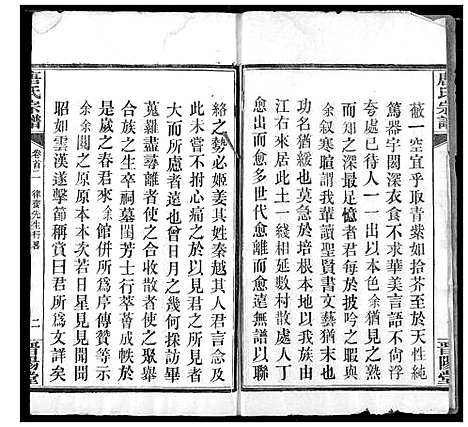 唐氏宗譜
蔽一空宜乎取青紫如拾芥至於天性純
篤器宇閎深衣食不求華美言語不尚浮
夸處已待人一以本色余猶見之
歲之最足憶者君每於吟之暇與
余叙寒暄謂我輩讀聖賢書文藝猶末也
功名猶緩也莫急於培根本地以我族由
江右來居此土一綫衍延數村散處人丁
愈出而愈多世代愈離而愈遠無譜以聯
絡之勢必姬姜其姓秦越其人君言念及
此未嘗不拊心痛之於以見君之所見者
大而所慮者遠也曾日月之幾何採訪畢
蒐羅盡尋離者使之合散者使之聚舉
合族之生卒祠墓閨芳士行萃成帙於
是歲之春君來余館併所爲序傳贊等示
余余閱之原原本本次若日星見見聞聞
昭如雲漢遂擊節稱賞曰君所爲文詳矣
唐氏宗譜
卷首二
律齋先生行畧
二
晋陽堂
晋陽堂